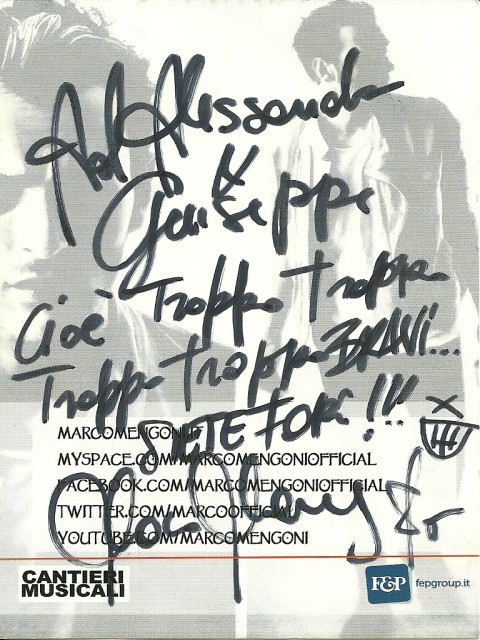 Ad Alessandra
X
Giuseppe
Cioè Troppo Troppo
Troppo Troppo BRAVI...
SIETE FORTI!!!
MARCOMENGONI.IT
MYSPACE.COM/MARCOMENGONIOFFICIAL
FACEBOOK.COM/MARCOMENGONIOFFICIAL
TWITTER.COM/MARCOOFFICIAL
YOUTUBE.COM/MARCOMENGONI
CANTIERI
MUSICALI
F&P fepgroup.it